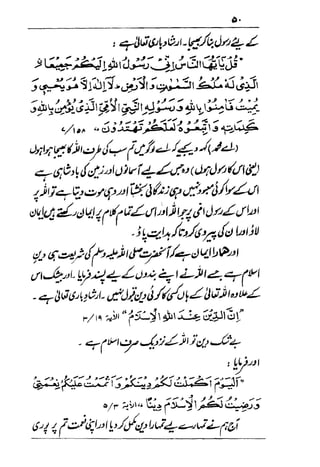 ۵۰
کے لئے رسول بنا کر بھیجا۔ ارشاد باری تعالیٰ ہے :
"قُلْ يَا أَيُّهَا النَّاسُ إِنِّي رَسُولُ اللهِ إِلَيْكُمْ جَمِيعًا
الَّذِي لَهُ مُلْكُ السَّمٰوٰتِ وَالْاَرْضِ لَا إِلٰهَ إِلَّا هُوَ يُحْيِي وَ
يُمِيتُ فَآمِنُوا بِاللهِ وَرَسُولِهِ النَّبِيِّ الْأُمِّيِّ الَّذِي يُؤْمِنُ بِاللهِ وَ
كَلِمَاتِهِ وَاتَّبِعُوهُ لَعَلَّكُمْ تَهْتَدُونَ" ۱۵۸/۷
(اے محمد) کہہ دیجیے کہ اے لوگو میں تم سب کی طرف اللہ کا بھیجا ہوا ہوں
(یعنی اس کا رسول ہوں) وہ جس کے لیے آسمانوں اور زمین کی بادشاہی ہے
اس کے سوا کوئی معبود نہیں وہی زندگانی بخشتا اور وہی موت دیتا ہے تو اللہ پر
اور اس کے رسول امی پر جو اللہ اور اس کے تمام کلام پر ایمان رکھتے ہیں ایمان
لاؤ اور ان کی پیروی کرو تاکہ ہدایت پاؤ۔
اور ہمارا ایمان ہے کہ آنحضرت صلی اللہ علیہ وسلم کی شریعت ہی دین
اسلام ہے جسے اللہ نے اپنے بندوں کے لیے پسند فرمایا۔ اور بیشک اس
کے علاوہ اللہ تعالیٰ کے ہاں کسی کا کوئی دین قبول نہیں۔ ارشاد باری تعالیٰ ہے۔
"إِنَّ الدِّينَ عِنْدَ اللهِ الْإِسْلَامُ" الآیۃ ۱۹/۳
بے شک دین تو اللہ کے نزدیک صرف اسلام ہے۔
اور فرمایا :
"اَلْيَوْمَ أَكْمَلْتُ لَكُمْ دِينَكُمْ وَأَتْمَمْتُ عَلَيْكُمْ نِعْمَتِي
وَرَضِيتُ لَكُمُ الْإِسْلَامَ دِينًا" الآیۃ ۳/۵
آج ہم نے تمہارے لیے تمہارا دین مکمل کر دیا اور اپنی نعمت تم پر پوری